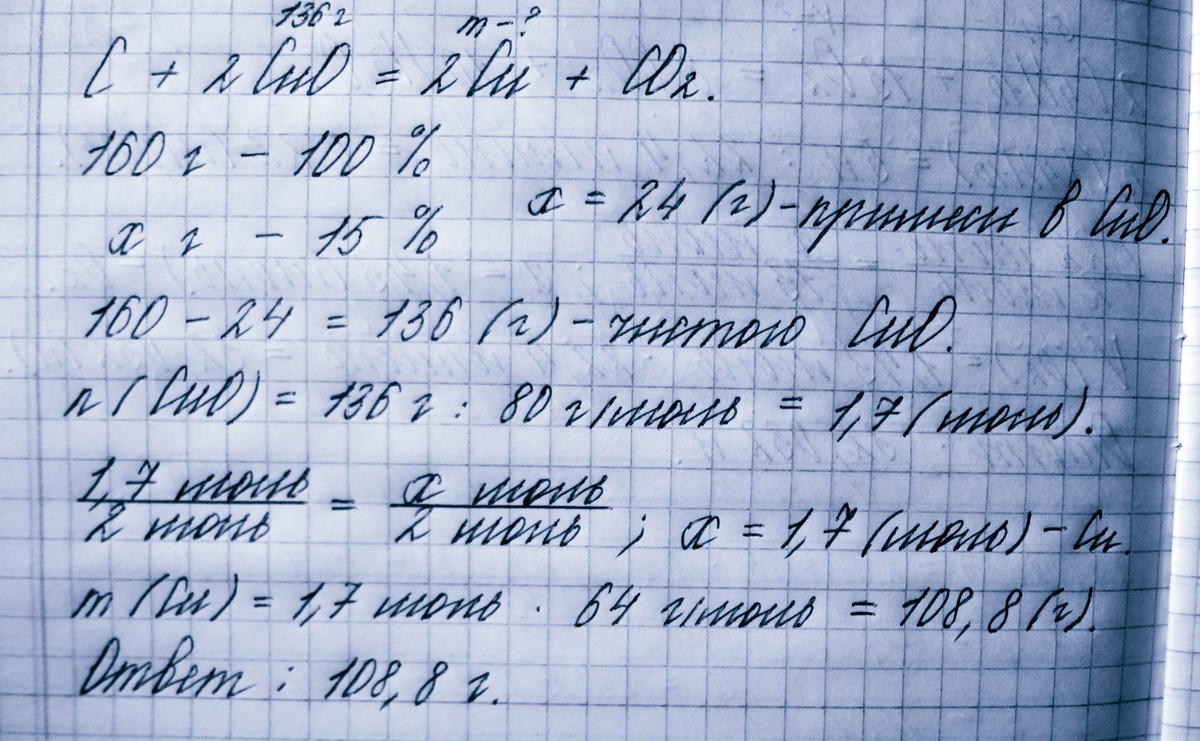 136 г m - ?
C + 2 CuO = 2 Cu + CO₂.
160 г - 100 %
x г - 15 %
x = 24 (г) - примеси в CuO.
160 - 24 = 136 (г) - чистого CuO.
n (CuO) = 136 г : 80 г/моль = 1,7 (моль).
1,7 моль / 2 моль = x моль / 2 моль ; x = 1,7 (моль) - Cu.
m (Cu) = 1,7 моль · 64 г/моль = 108,8 (г).
Ответ : 108,8 г.